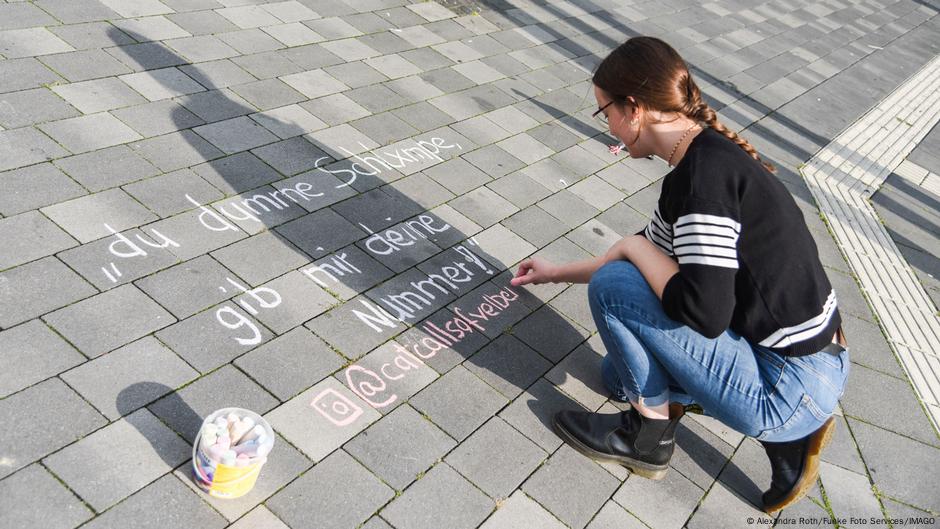 „du dumme Schlxmpe,
gib mir deine
Nummer!"
@catcallsofvelber
© Alexandra Roth/Funke Foto Services/IMAGO